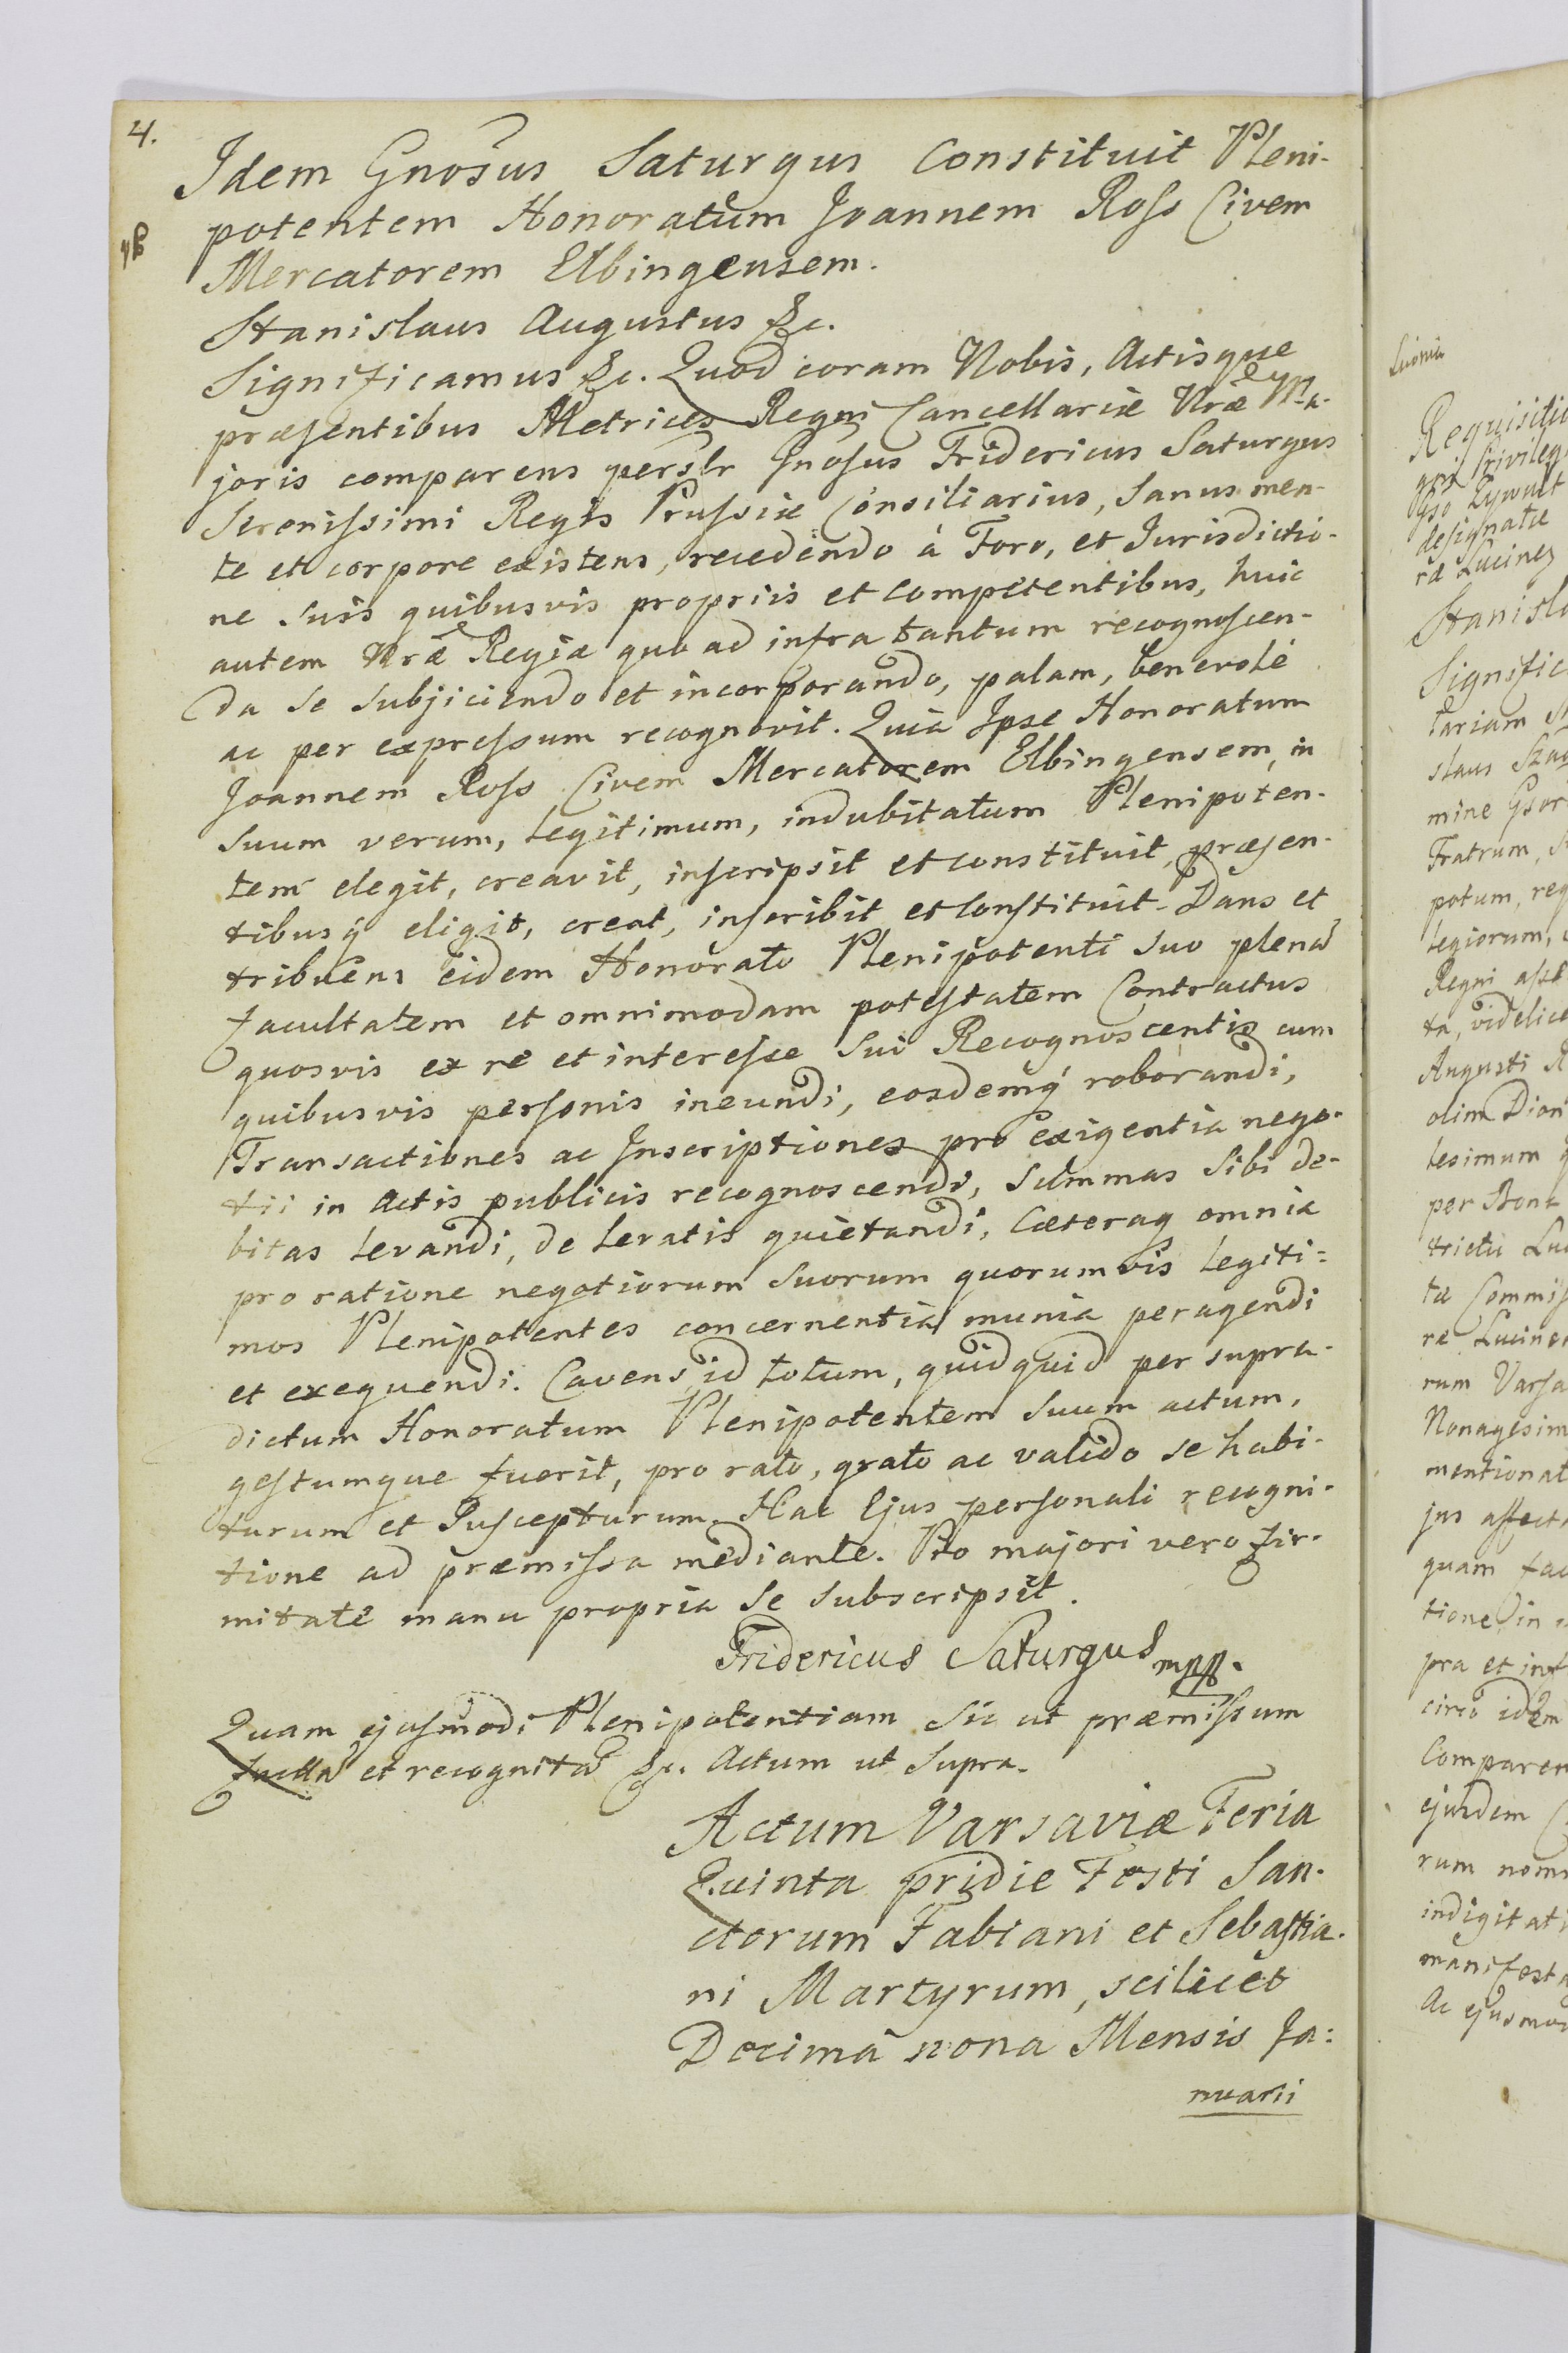 4.
Idem Gnosus Saturgus Constituit Pleni-
potentem Honoratum Joannem Ross Civem
Mercatorem Elbingensem.
Stanislaus Augustus &c.
Significamus &c. Quod coram Nobis, Actisque
præsentibus Metrices Regni Cancellariæ Nræ Ma-
joris comparens perslr Gnosus Fridericus Saturgus
Serenissimi Regis Prussiæ Consiliarius, Sanus men-
te et corpore existens, recedendo à Foro, et Jurisdictio-
ne suis quibusvis propriis et competentibus, huic
autem Nræ Regiæ quo ad infra tantum recognoscen-
da se subjiciendo et incorporando, palam, benevolé
ac per expressum recognovit. Quia Ipse Honoratum
Joannem Ross Civem Mercatorem Elbingensem, in
suum verum, legitimum, indubitatum Plenipoten-
tem elegit, creavit, inscripsit et constituit, præsen-
tibusq́ eligit, creat, inscribit et constituit. Dans et
tribuens eidem Honorato Plenipotenti suo plenã
facultatem et omnimodam potestatem Contractus
quosvis ex re et interesse sui Recognoscentis cum
quibusvis personis ineundi, eosdemq́ roborandi,
Transactiones ac Inscriptiones pro exigentia nego-
tii in Actis publicis recognoscendi, Summas sibi de-
bitas levandi, de levatis quietandi, Cæteraq omnia
pro ratione negotiorum suorum quorumvis legiti-
mos Plenipotentes concernentia munia peragendi
et exequendi. Cavens id totum, quidquid per supra-
dictum Honoratum Plenipotentem suum actum,
gestumque fuerit, pro rato, grato ac valido se habi-
turum et suscepturum. Hac Ejus personali recogni-
tione ad præmissa mediante. Pro majori vero fir-
mitate manu propria se subscripsit.
Fridericus Saturgus mpp.
Quam ejusmodi Plenipotentiam sic ut præmissum
factã et recognitã &c. Actum ut Supra.
Actum Varsaviæ Feria
Quinta pridie Festi San-
ctorum Fabiani et Sebastia-
ni Martyrum, scilicet
Decima nona Mensis Ja:
nuarii
Requisitio
designatæ
Stanisla
Signific
tariam
slaus
mine
Fratrum,
potum, req
legiorum,
Regni
ta, videlice
Augusti R
olim Dion
tesimum
per Bona
trictu Luc
tæ Commiss
rum Varsa
Nonagesim
mentionat
jus affect
quam fac
tione in
pra et inf
circo idem
Comparen
ejusdem
rum nomi
indigitat
manifest
Ac ejusmod